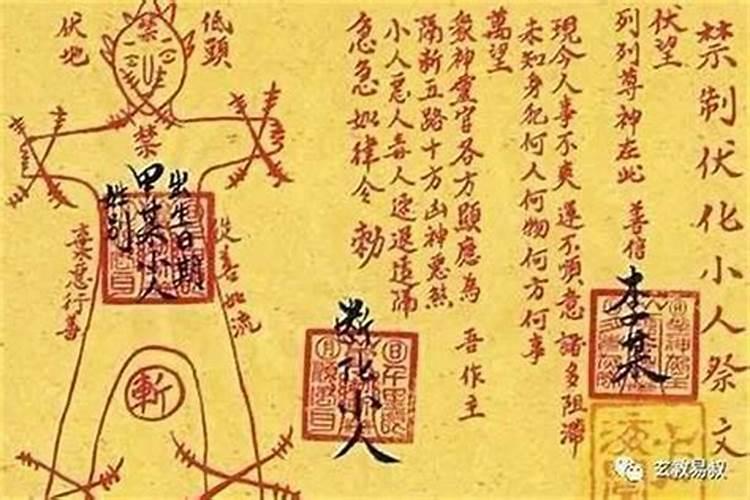 禁制伏化小人祭文
伏望
列列尊神在此 善信
李某
現今人事不爽運不順意諸多阻滯
未知身犯何人何物何方何事
萬望
眾神靈官各方顯應為 吾作主
隔斬五路十方凶神惡煞
小人惡人毒人速退遠隔
急急如律令 勅
斷化小人
低頭
伏地
禁
禁
出生日期
甲某小人
姓別
從善如流
棄惡行善
斬
玄教易叔